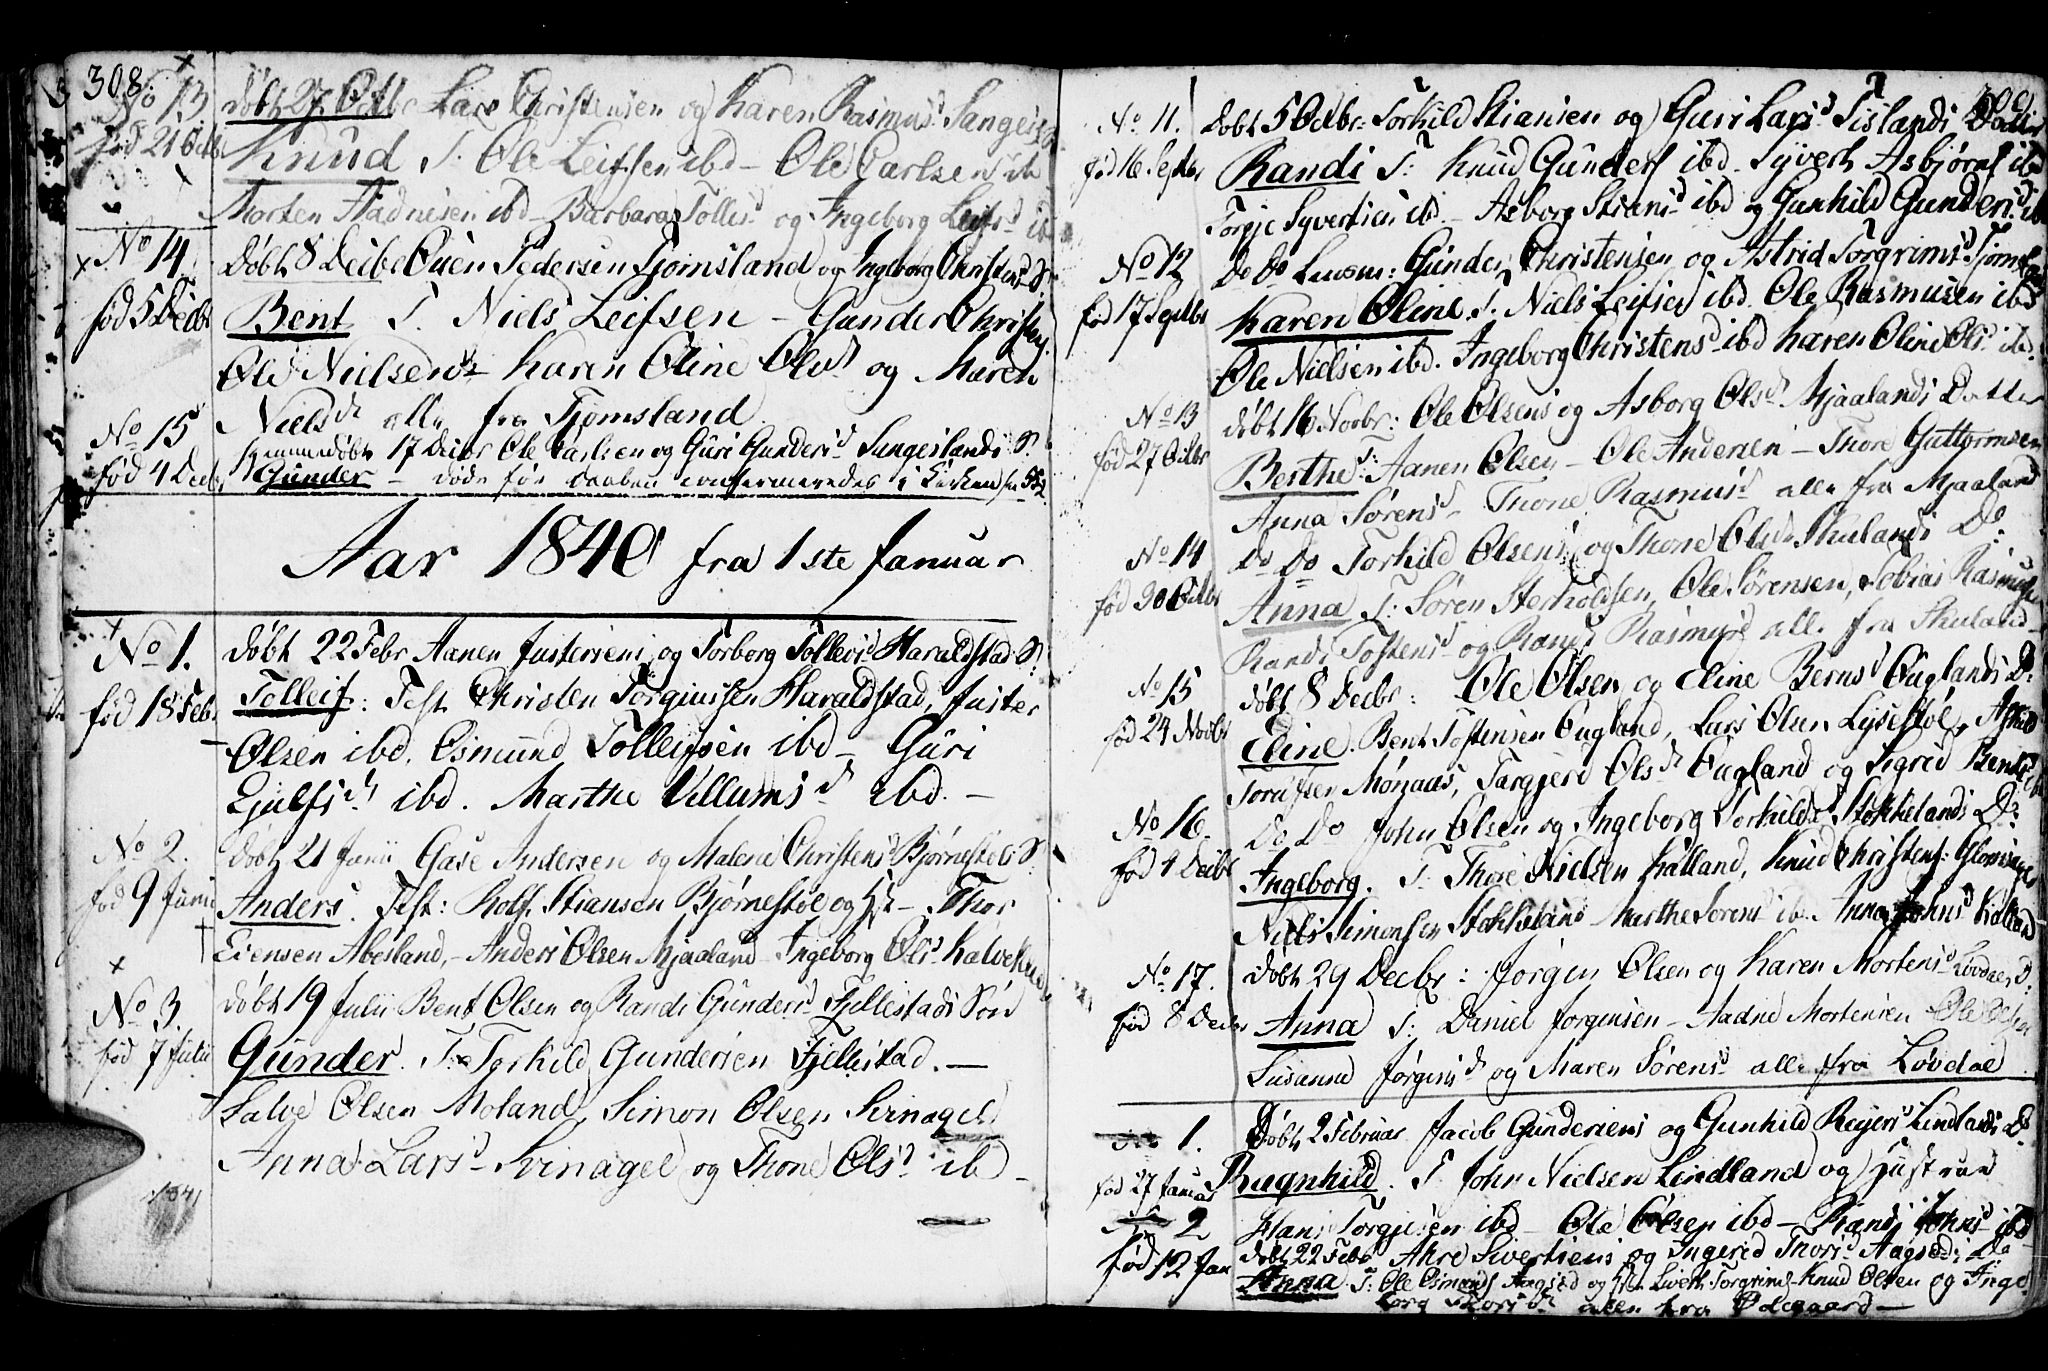 308.
No 13
fød 21 Octbr
døbt 27 Octbr Lars Christensen og Karen Rasmusd
Knud T. Ole Leifsen ibd - Ole Carlsen ib
Morten Aadnesen ibd - Barbara Tollisd og Ingeborg Leifsd ib
No 14
fød 5 Decbr
Døbt 8 Decbr Ouen Pedersen Tjomsland og Ingeborg Christensd S.
Bent T. Niels Leifsen - Gunder Christens.
Ole Nielsen - Karen Oline Olsd og Maren
Nielsd alle fra Tjomsland
No 15
fød 4 Decbr
hjemmedøbt 17 Decbr Ole Carlsen og Guri Gundersd Sangeslands S.
Gunder - døde før daaben confermeredes i Kirken
Aar 1840 fra 1ste Januar
No 1.
fød 18 Febr
døbt 22 Febr Aanen Justesens og Torborg Tollevsd Haraldstad S.
Tolleif: Test. Christen Torginssen Haraldstad, Juster
Olsen ibd. Osmund Tolleifsen ibd - Guri
Ejulfsd ibd. Marthe Villumsd ibd. -
No 2.
fød 9 Junii
døbt 21 Junii Gase Andersen og Malene Christensd Bjørnestøls S.
Anders. Test: Rolf Stiansen Bjørnestøl og Hst - Thor
Eiensen Abesland, - Anders Olsen Mjaaland Ingeborg Olsd
No 3.
fød 7 Julii
døbt 19 Julii Bent Olsen og Randi Gundersd Fjellestads Søn
Gunder. T. Torkild Gundersen Fjellestad. -
Salve Olsen Moland, Simon Olsen Svinagel
Anna Larsd Svinagel og Thone Olsd ibd -
No 11.
fød 16. Septbr
døbt 5 Octbr: Torkild Stiansen og Guri Larsd Sislands Datter
Randi T: Knud Gunders ibd - Syvert Asbjørns ibd
Torje Syvertsen ibd - Asborg Stiansd ibd og Gunhild Gundersd ib
No 12
fød 17 Septbr
Do Do Gunder Christensen og Astrid Torgrimsd
Karen Oline T. Niels Leifsen ibd. Ole Rasmusen ibd
Ole Nielsen ibd. Ingeborg Christensd ibd Karen Oline Olsd ibd.
No 13
fød 27 Octbr
døbt 16 Novbr: Ole Olsens og Asborg Olsd Mjaalands Datter
Berthe T: Aanen Olsen - Ole Andersen - Thore Guttormsen
Anna Sørensd - Thone Rasmusd alle fra Mjaaland
No 14
fød 30 Octbr
Do Do Torkild Olsens og Thone Olsd Skulands Do
Anna T: Søren Sterholdsen, Ole Sørensen, Tobias Rasmusen
Randi Tostensd og Rasmusd alle fra Skuland
No 15
fød 24 Novbr
døbt 8 Decbr: Ole Olsen og Eline Berntsd Ouglands D.
Eline. Bent Tostensen Ougland, Lars Olsen Lysestøl,
Torgjerd Olsd Ougland og Sigrid Bentsd
No 16.
fød 4 Decbr
Do Do John Olsen og Ingeborg Torkildsd Stokkelands D.
Ingeborg. T. Thore Nielsen Kalland, Knud Christens:
Niels Simonsen Stokkeland Marthe Sorensd ib. Anna Johnsd
No 17.
fød 8 Decbr
døbt 29 Decbr: Jørgen Olsen og Karen Mortensd Lovdals D:
Anna T: Daniel Jorgensen - Aadne Mortensen Ole Olsen
Susanne Jørgensd og Maren Sørensd alle fra Løvdal
1.
fød 27 Januar
Døbt 2 Februar Jacob Gundersens og Gunhild Reyersd Lindlands D.
Ragnhild. T. John Nielsen Lindland og Hustrue
Hans Torgjesen ibd - Ole Olsen ibd - Randi Johnsd ibd
2
fød 12 Jan
døbt 22 Febr Ahre Sivertsens og Ingerid Thorsd Do
Anna T: Ole Osmunds og Hst Sivert Torgrims - Knud Olsen og Inge-
borg Thorsd alle fra Ødegaard -